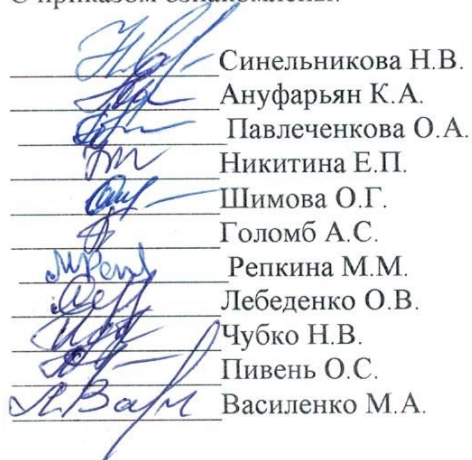 С приказом ознакомлены:
Синельникова Н.В.
Ануфарьян К.А.
Павлеченкова О.А.
Никитина Е.П.
Шимова О.Г.
Голомб А.С.
Репкина М.М.
Лебеденко О.В.
Чубко Н.В.
Пивень О.С.
Василенко М.А.